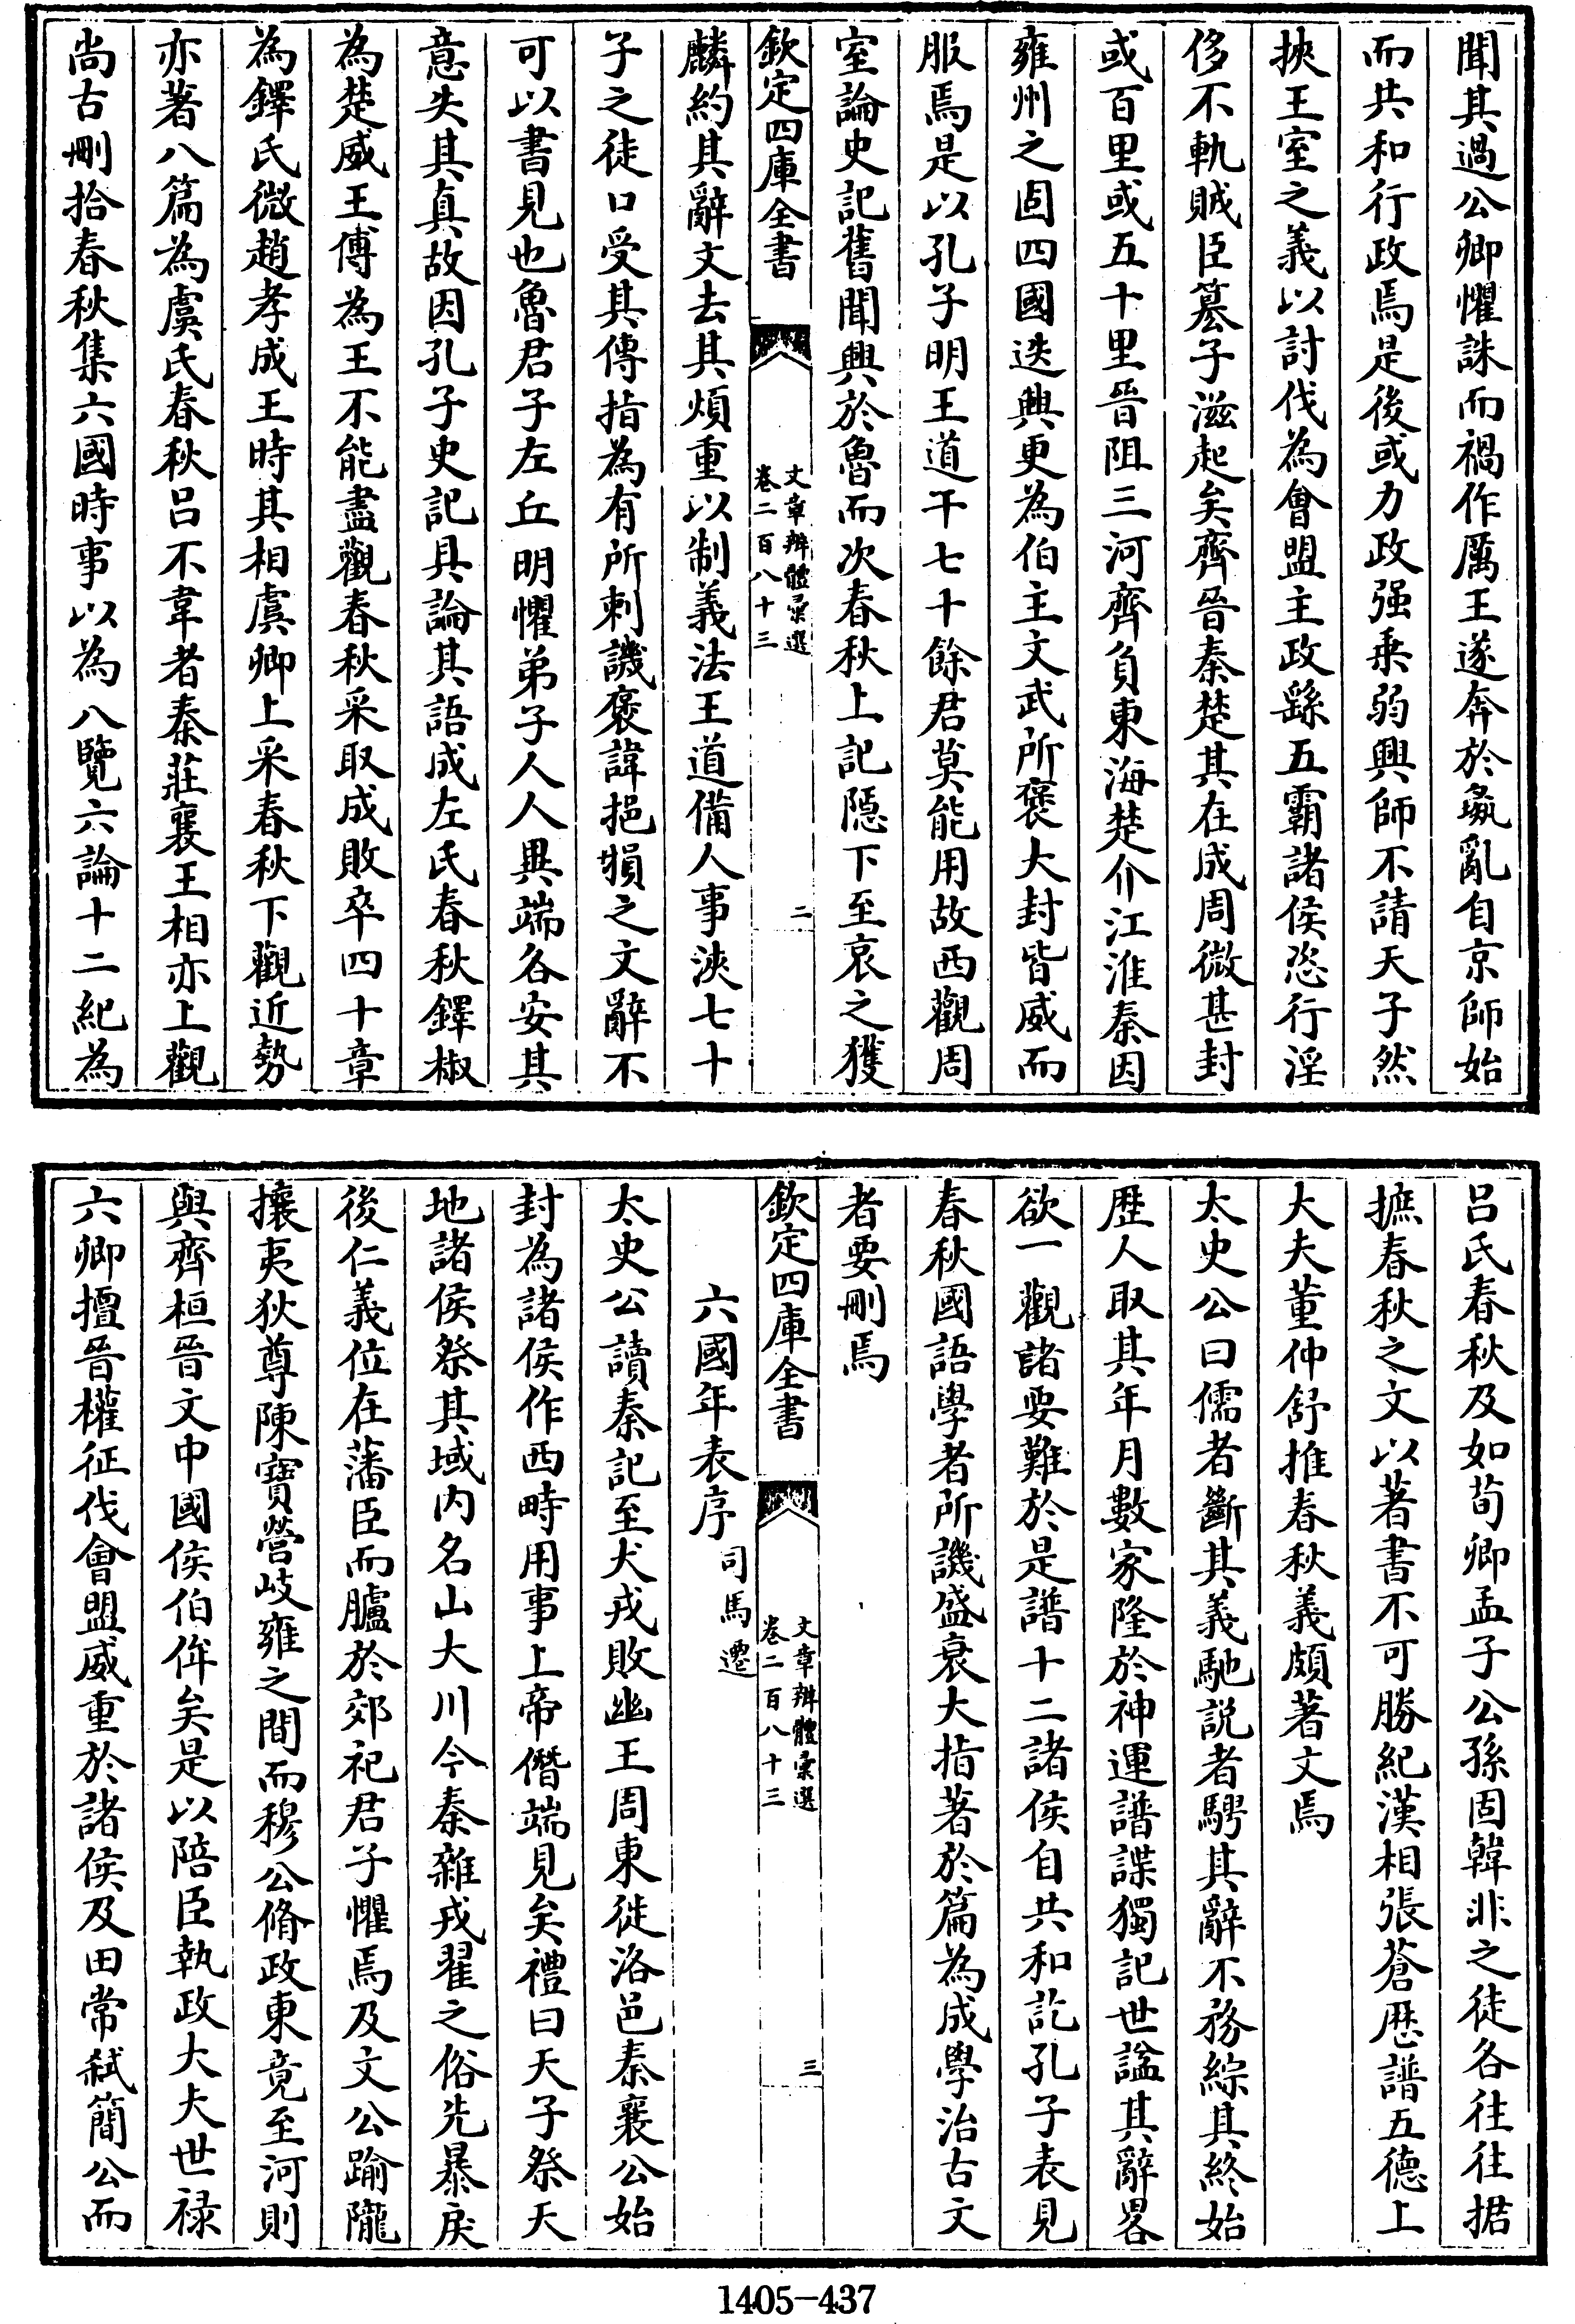 聞其過公卿懼誅而禍作厲王遂奔於彘亂自京師始
而共和行政焉是後或力政强乗弱興師不請天子然
挾王室之義以討伐為會盟主政繇五霸諸侯恣行淫
侈不軌賊臣簒子滋起矣齊晉秦楚其在成周微甚封
或百里或五十里晉阻三河齊負東海楚介江淮秦因
雍州之固四國迭興更為伯主文武所褒大封皆威而
服焉是以孔子明王道干七十餘君莫能用故西觀周
室論史記舊聞興於魯而次春秋上記隠下至哀之獲
欽定四庫全書
文章辨體彙選
卷二百八十三
二
麟約其辭文去其煩重以制義法王道備人事浹七十
子之徒口受其傳指為有所刺譏褒諱挹損之文辭不
可以書見也魯君子左丘明懼弟子人人異端各安其
意失其真故因孔子史記具論其語成左氏春秋鐸椒
為楚威王傅為王不能盡觀春秋采取成敗卒四十章
為鐸氏微趙孝成王時其相虞卿上采春秋下觀近勢
亦著八篇為虞氏春秋吕不韋者秦莊襄王相亦上觀
尚古刪拾春秋集六國時事以為八覽六論十二紀為
吕氏春秋及如荀卿孟子公孫固韓非之徒各往往据
摭春秋之文以著書不可勝紀漢相張蒼歴譜五德上
大夫董仲舒推春秋義頗著文焉
太史公曰儒者斷其義馳説者騁其辭不務綜其終始
歴人取其年月數家隆於神運譜諜獨記世諡其辭畧
欲一觀諸要難於是譜十二諸侯自共和訖孔子表見
春秋國語學者所譏盛衰大指著於篇為成學治古文
者要刪焉
欽定四庫全書
文章辨體彙選
卷二百八十三
三
六國年表序 司馬遷
太史公讀秦記至犬戎敗幽王周東徙洛邑秦襄公始
封為諸侯作西畤用事上帝僭端見矣禮曰天子祭天
地諸侯祭其域内名山大川今秦雜戎翟之俗先暴戾
後仁義位在藩臣而臚於郊祀君子懼焉及文公踰隴
攘夷狄尊陳寶營岐雍之間而穆公脩政東竟至河則
與齊桓晉文中國侯伯侔矣是以陪臣執政大夫世禄
六卿擅晉權征伐會盟威重於諸侯及田常弑簡公而
1405-437